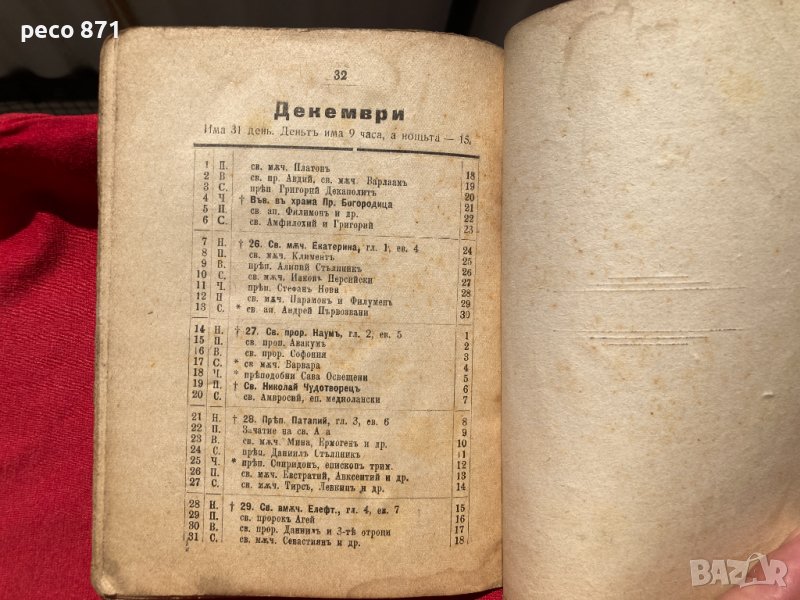 peco 871
32
Декември
Има 31 день. Деньтъ има 9 часа, а нощьта — 15.
1 П. св. мѫч. Платонъ 18
2 В св. пр. Авдий, св. мѫч. Варлаам 19
3 С. прѣп Григорий Декаполит 20
4 Ч † Във. въ храма Пр. Богородица 21
5 П св. ап. Филимон и др. 22
6 С. св. Амфилохий и Григорий 23
7 Н. † 26. Св. мѫч. Екатерина, гл. 1, ев. 4 24
8 П св. мѫч. Климентъ 25
9 В. прѣп. Алипий Стълпник 26
10 С. св. мѫч. Иаков Персийски 27
11 Ч. прѣп. Стефанъ Нови 28
12 П св. мѫч. Парамон и Филумен 29
13 С. * св. ап. Андрей Първозвани 30
14 Н. † 27. Св. прор. Наумъ, гл. 2, ев. 5 1
15 П. св. прор. Авакумъ 2
16 В. св. прор. Софония 3
17 С. * св мѫч. Варвара 4
18 Ч. * прѣподобни Сава Освещени 5
19 П. † Св. Николай Чудотворецъ 6
20 С. св. Амвросий, еп. медиолански 7
21 Н. † 28. Прѣп. Патапий, гл. 3, ев. 6 8
22 П. Зачатие на св. А а 9
23 В. св. мѫч. Мина, Ермоген и др. 10
24 С. прѣп. Даниил Стълпник 11
25 Ч. * прѣп. Спиридонъ, епископъ трим. 12
26 П. св. мѫч. Евстратий, Авксентий и др. 13
27 С. св. мѫч. Тирсъ, Левкипъ и др. 14
28 Н. † 29. Св. вмѫч. Елефт., гл. 4, ев. 7 15
29 П. св. пророкъ Агей 16
30 В. св. прор. Даниилъ и 3-тѣ отроци 17
31 С. св. мѫч. Севастиянъ и др. 18
BAZAR
bg